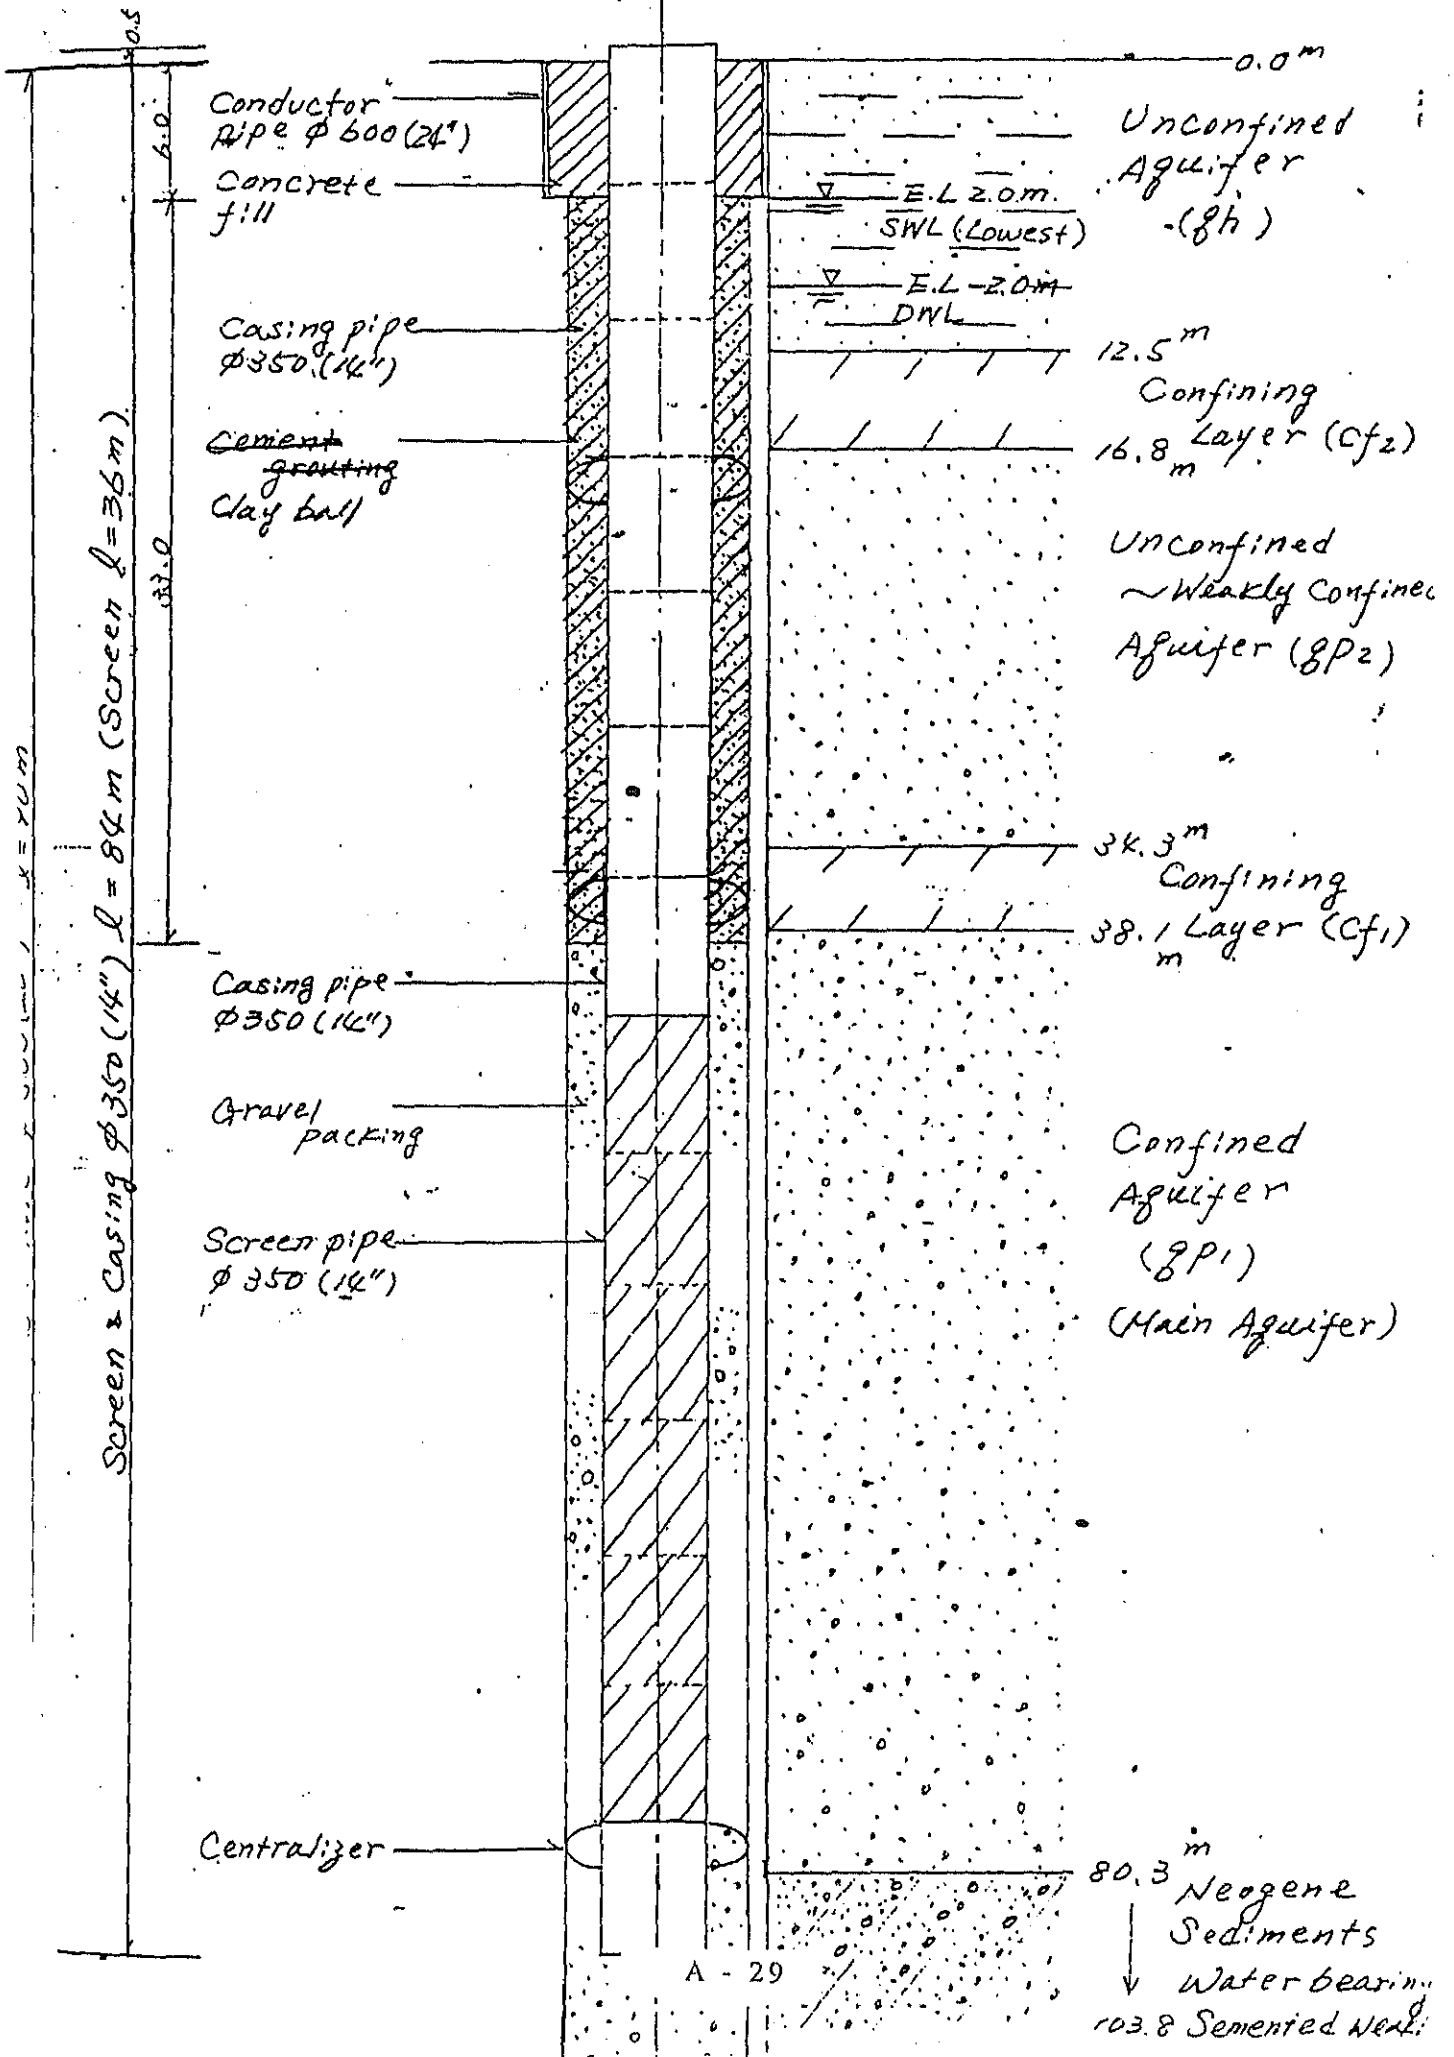 0.5
6.0
33.0
Screen & Casing φ350 (14") l = 84 m (Screen l = 36 m)
Conductor
pipe φ 600 (24")
Concrete
fill
Casing pipe
φ350 (14")
Cement
grouting
Clay ball
Casing pipe
φ350 (14")
Gravel
packing
Screen pipe
φ 350 (14")
Centralizer
E.L 2.0 m.
SWL (Lowest)
E.L -2.0m
DWL
0.0 m
Unconfined
Aquifer
(qh)
12.5 m
Confining
Layer (Cf2)
16.8 m
Unconfined
~Weakly Confined
Aquifer (qp2)
34.3 m
Confining
Layer (Cf1)
38.1 m
Confined
Aquifer
(qp1)
(Main Aquifer)
80.3 m
Neogene
Sediments
Water bearing
103.8 Semented
A - 29